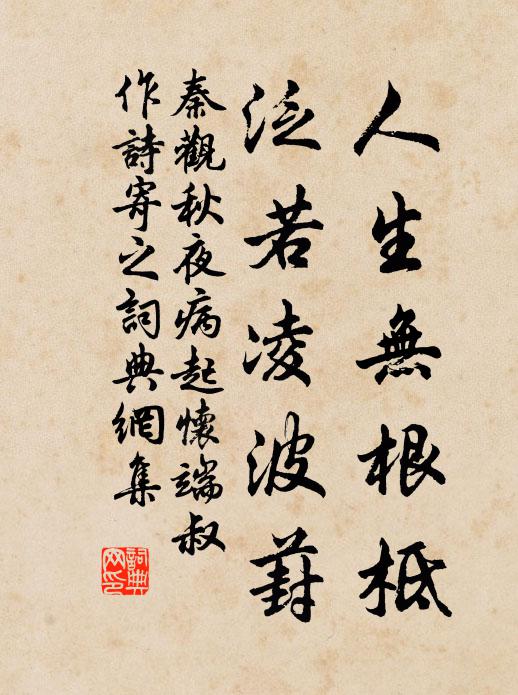 人生無根柢
泛若凌波葑
秦觀秋夜病起懷端叔
作詩寄之詞典網集
詞典
网印